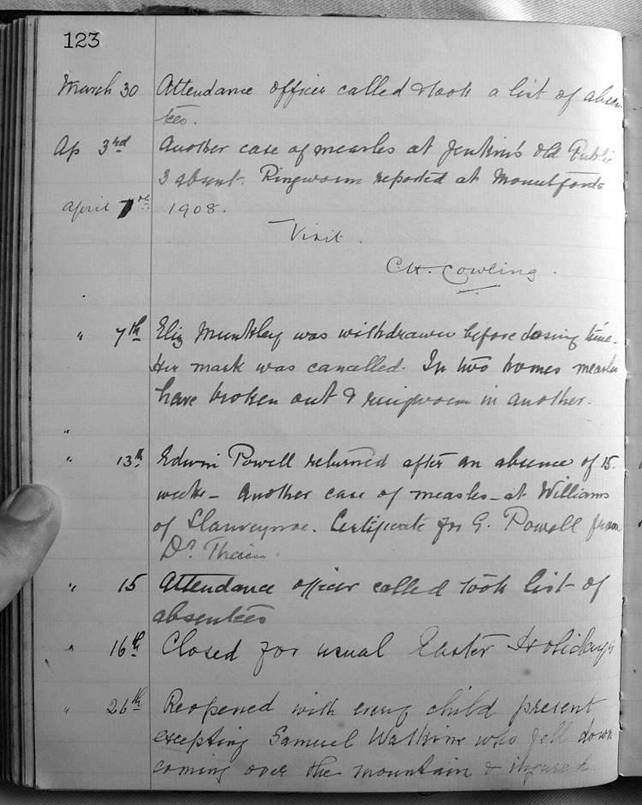 123
March 30 Attendance officer called & took a list of absen
tees.
Ap 3rd Another case of measles at Jenkins old Public
3 absent. Ringworm reported at Mountford
April 7th 1908.
Visit.
C.H. Cowling.
" 7th Eliz Munkley was withdrawn before closing time.
Her mark was cancelled. In two homes measles
have broken out & ringworm in another.
"
" 13th Edwin Powell returned after an absence of 15
weeks – Another case of measles – at Williams
of Llanveynoe. Certificate for G. Powell from
Dr. Thain.
" 15 Attendance officer called took list of
absentees
" 16th Closed for usual Easter Holidays
" 26th Reopened with every child present
excepting Samuel Watkins who fell down
coming over the mountain & injured